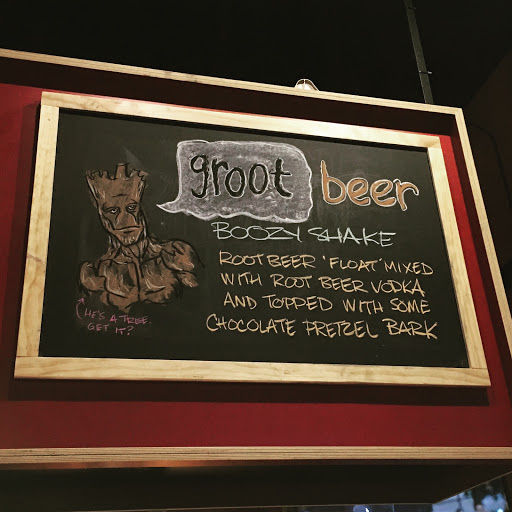 groot beer
BOOZY SHAKE
ROOT BEER 'FLOAT' MIXED
WITH ROOT BEER VODKA
AND TOPPED WITH SOME
CHOCOLATE PRETZEL BARK
(HE'S A TREE.
GET IT?